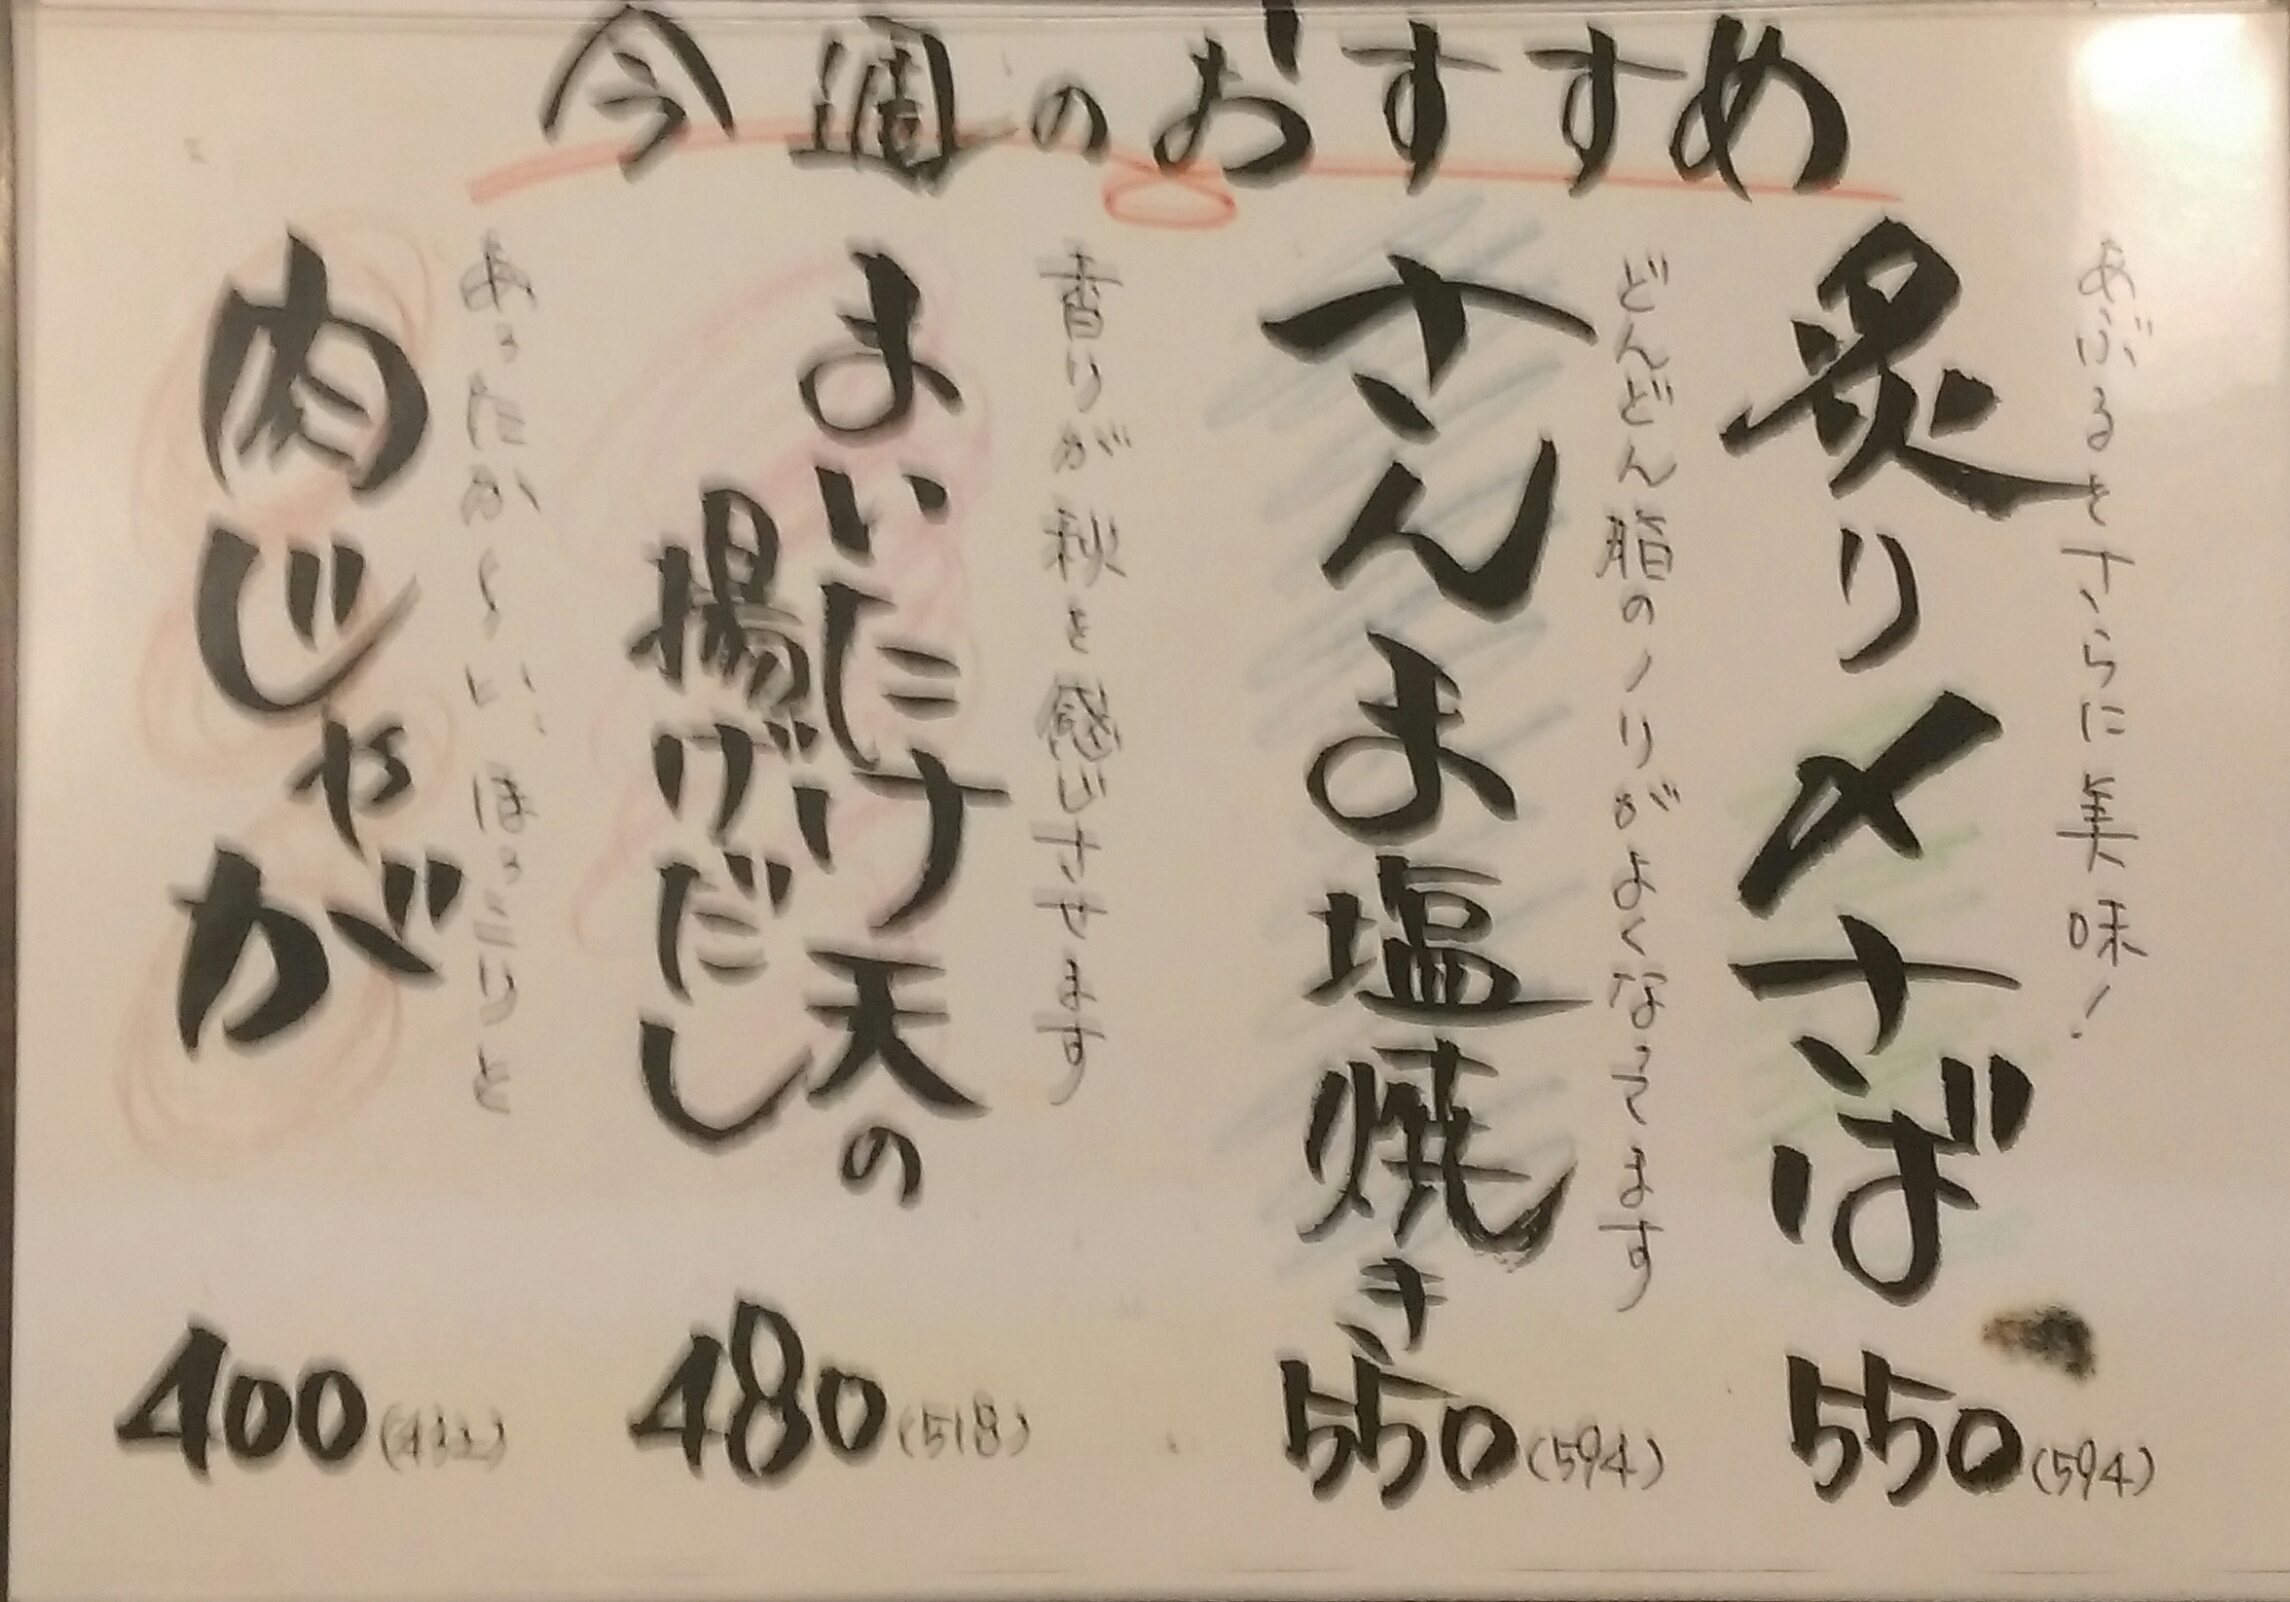 今週のおすすめ
あぶるとさらに美味!
炙り〆さば
550(594)
どんどん脂のノリがよくなってます
さんま塩焼き
550(594)
香りが秋を感じさせます
まいたけ天の
揚げだし
480(518)
あったか〜い、ほっこりと
肉じゃが
400(432)